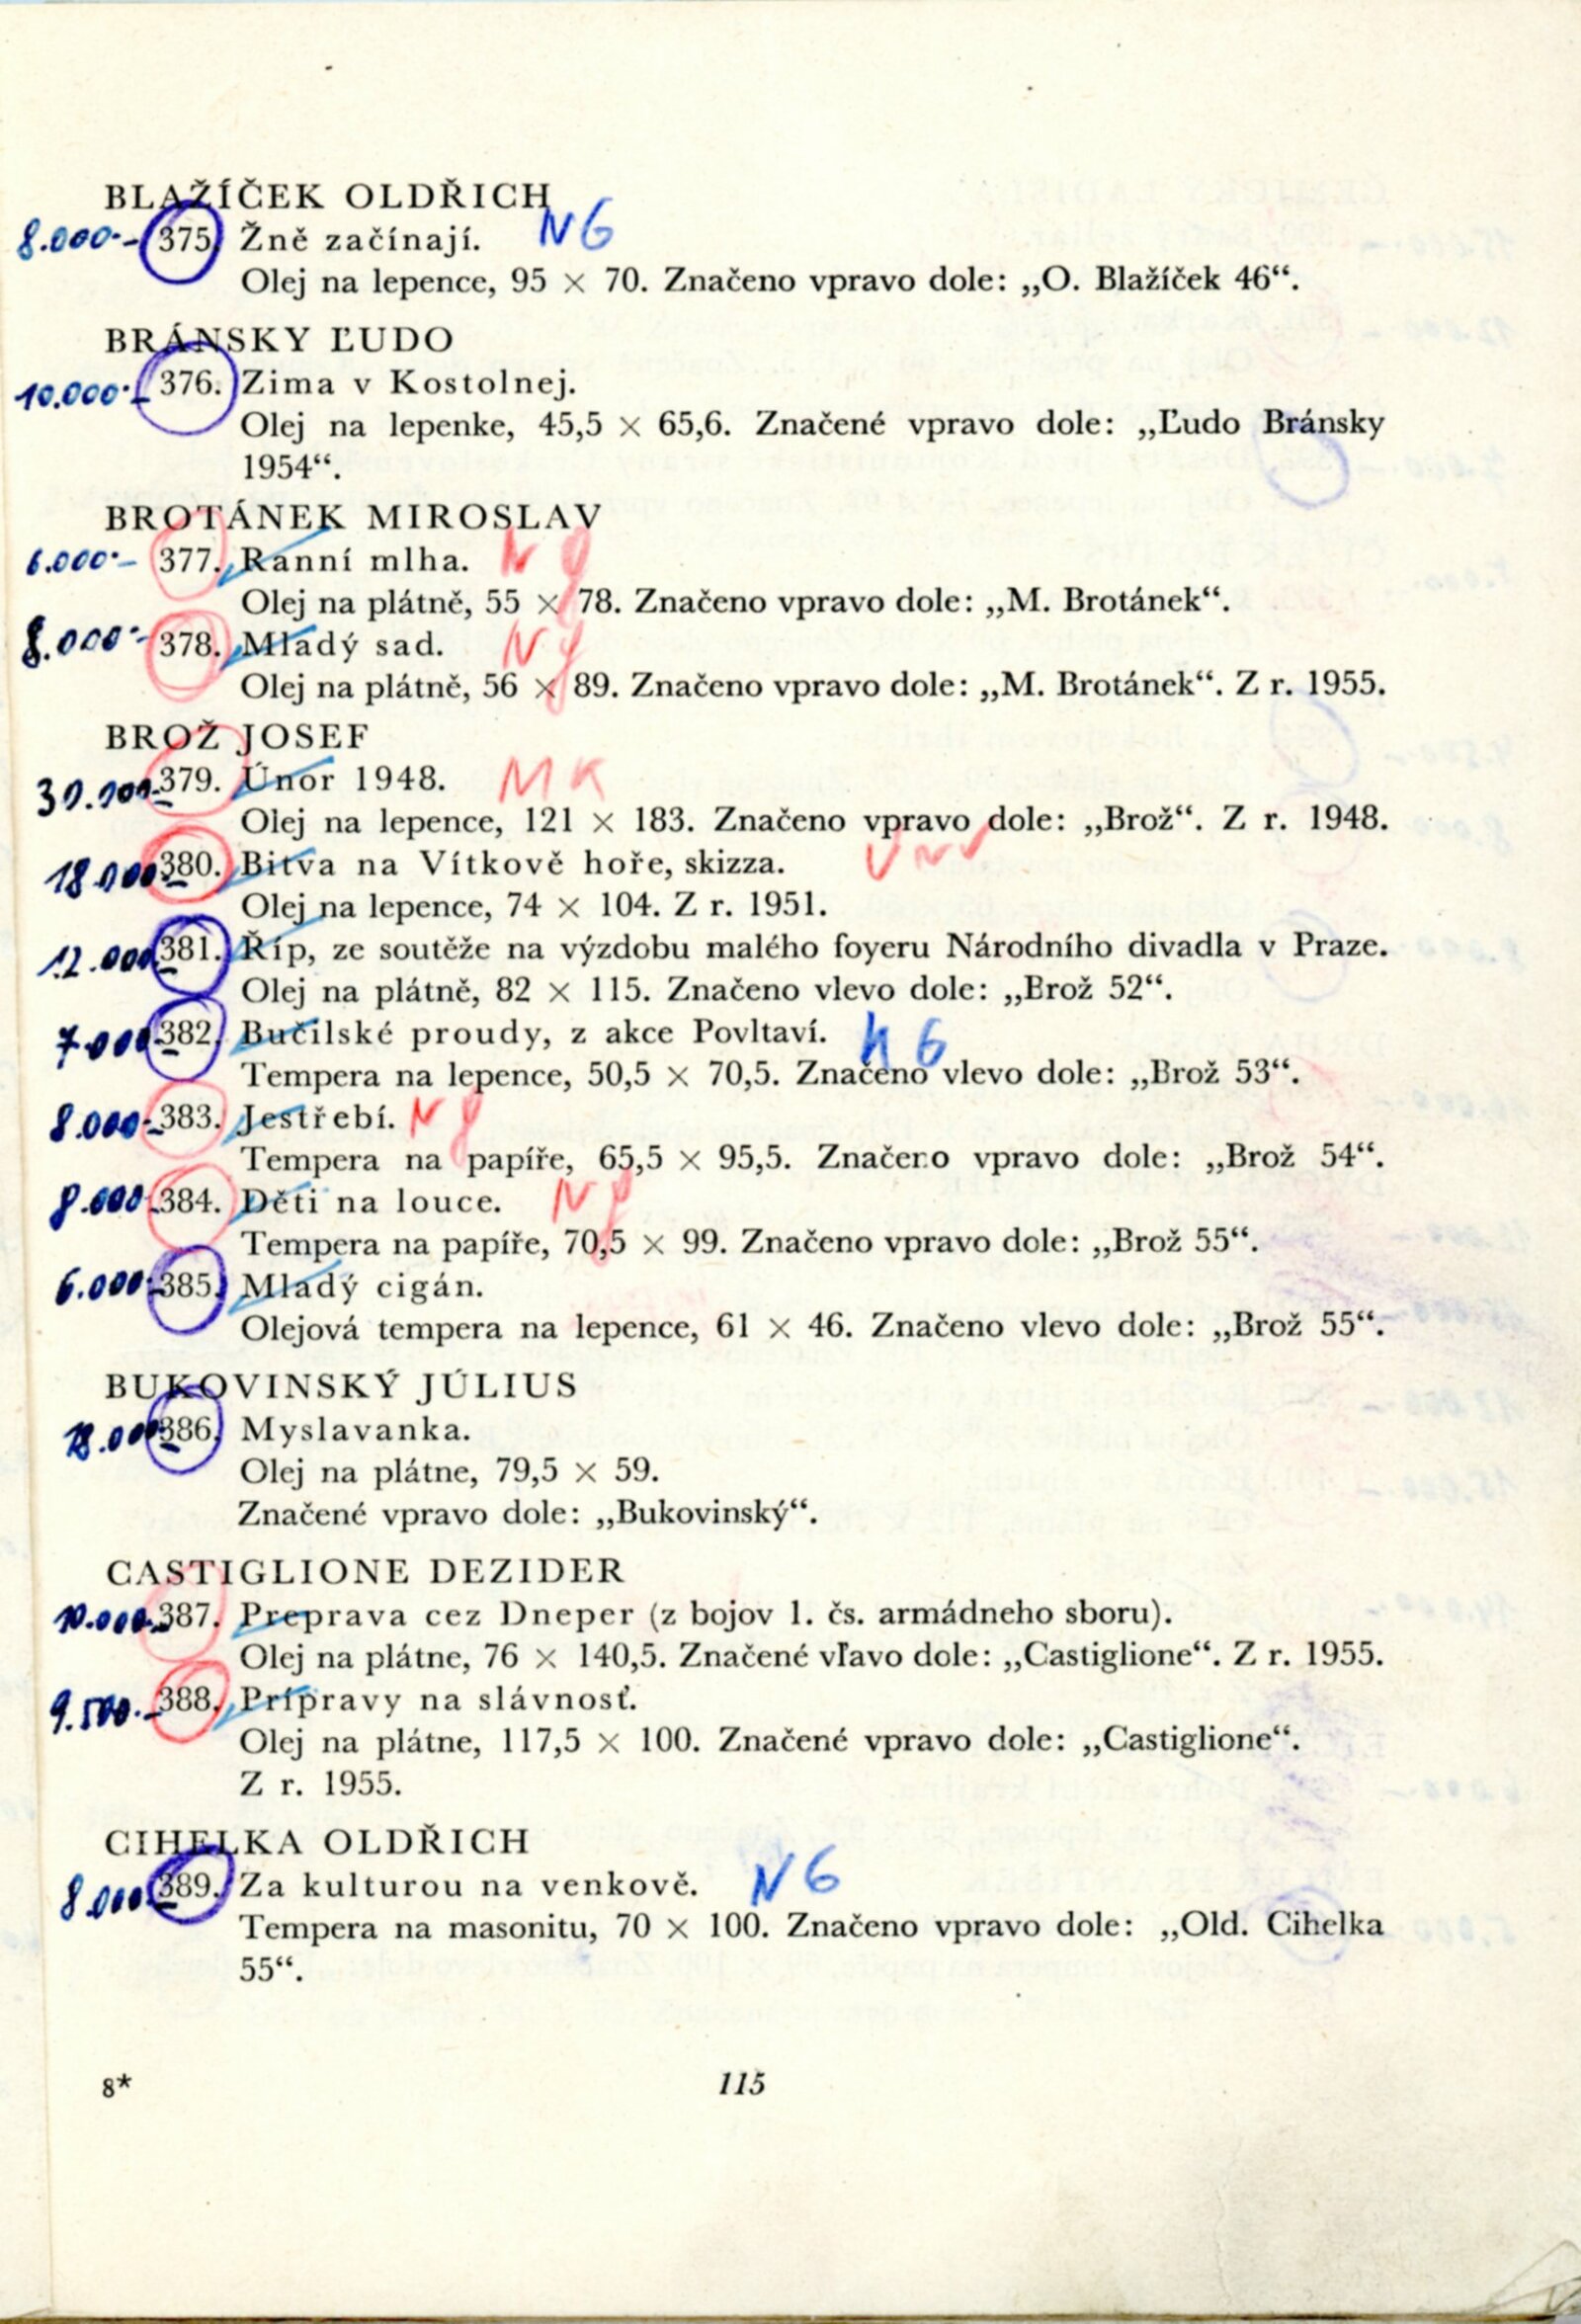 BLAŽÍČEK OLDŘICH
8.000.- 375. Žně začínají. NG
Olej na lepence, 95 × 70. Značeno vpravo dole: „O. Blažíček 46“.
BRÁNSKY ĽUDO
10.000.- 376. Zima v Kostolnej.
Olej na lepenke, 45,5 × 65,6. Značené vpravo dole: „Ľudo Bránsky
1954“.
BROTÁNEK MIROSLAV
6.000.- 377. Ranní mlha. N g
Olej na plátně, 55 × 78. Značeno vpravo dole: „M. Brotánek“.
8.000.- 378. Mladý sad. N g
Olej na plátně, 56 × 89. Značeno vpravo dole: „M. Brotánek“. Z r. 1955.
BROŽ JOSEF
379. Únor 1948. MK
Olej na lepence, 121 × 183. Značeno vpravo dole: „Brož“. Z r. 1948.
18.000.- 380. Bitva na Vítkově hoře, skizza.
Olej na lepence, 74 × 104. Z r. 1951.
12.000.- 381. Říp, ze soutěže na výzdobu malého foyeru Národního divadla v Praze.
Olej na plátně, 82 × 115. Značeno vlevo dole: „Brož 52“.
7.000.- 382. Bučilské proudy, z akce Povltaví. NG
Tempera na lepence, 50,5 × 70,5. Značeno vlevo dole: „Brož 53“.
8.000.- 383. Jestřebí. N g
Tempera na papíře, 65,5 × 95,5. Značeno vpravo dole: „Brož 54“.
8.000.- 384. Děti na louce. N g
Tempera na papíře, 70,5 × 99. Značeno vpravo dole: „Brož 55“.
6.000.- 385. Mladý cigán.
Olejová tempera na lepence, 61 × 46. Značeno vlevo dole: „Brož 55“.
BUKOVINSKÝ JÚLIUS
386. Myslavanka.
Olej na plátne, 79,5 × 59.
Značené vpravo dole: „Bukovinský“.
CASTIGLIONE DEZIDER
10.000.- 387. Preprava cez Dneper (z bojov 1. čs. armádneho sboru).
Olej na plátne, 76 × 140,5. Značené vľavo dole: „Castiglione“. Z r. 1955.
9.500.- 388. Prípravy na slávnosť.
Olej na plátne, 117,5 × 100. Značené vpravo dole: „Castiglione“.
Z r. 1955.
CIHELKA OLDŘICH
8.000.- 389. Za kulturou na venkově. NG
Tempera na masonitu, 70 × 100. Značeno vpravo dole: „Old. Cihelka
55“.
8* 115